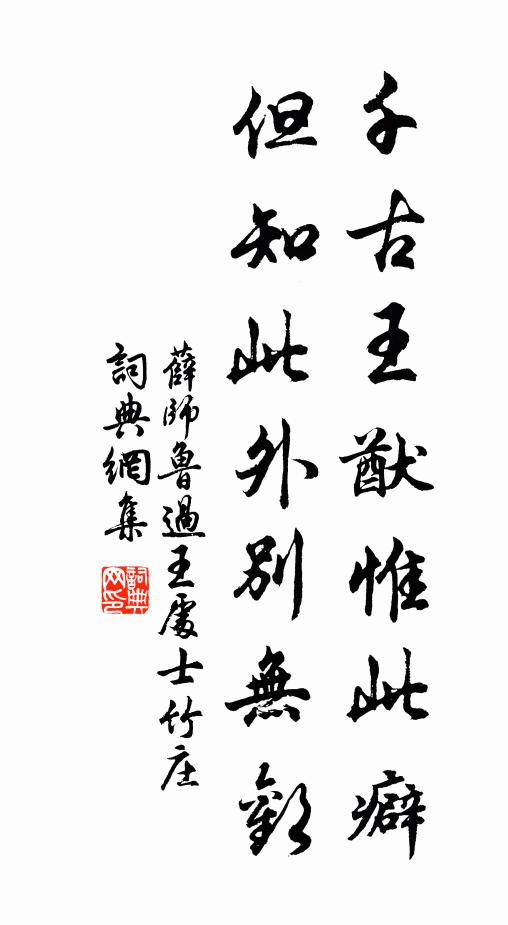 千古王猷惟此癖
但知此外別無歡
薛師魯過王處士竹庄
詞典網集
詞典網印